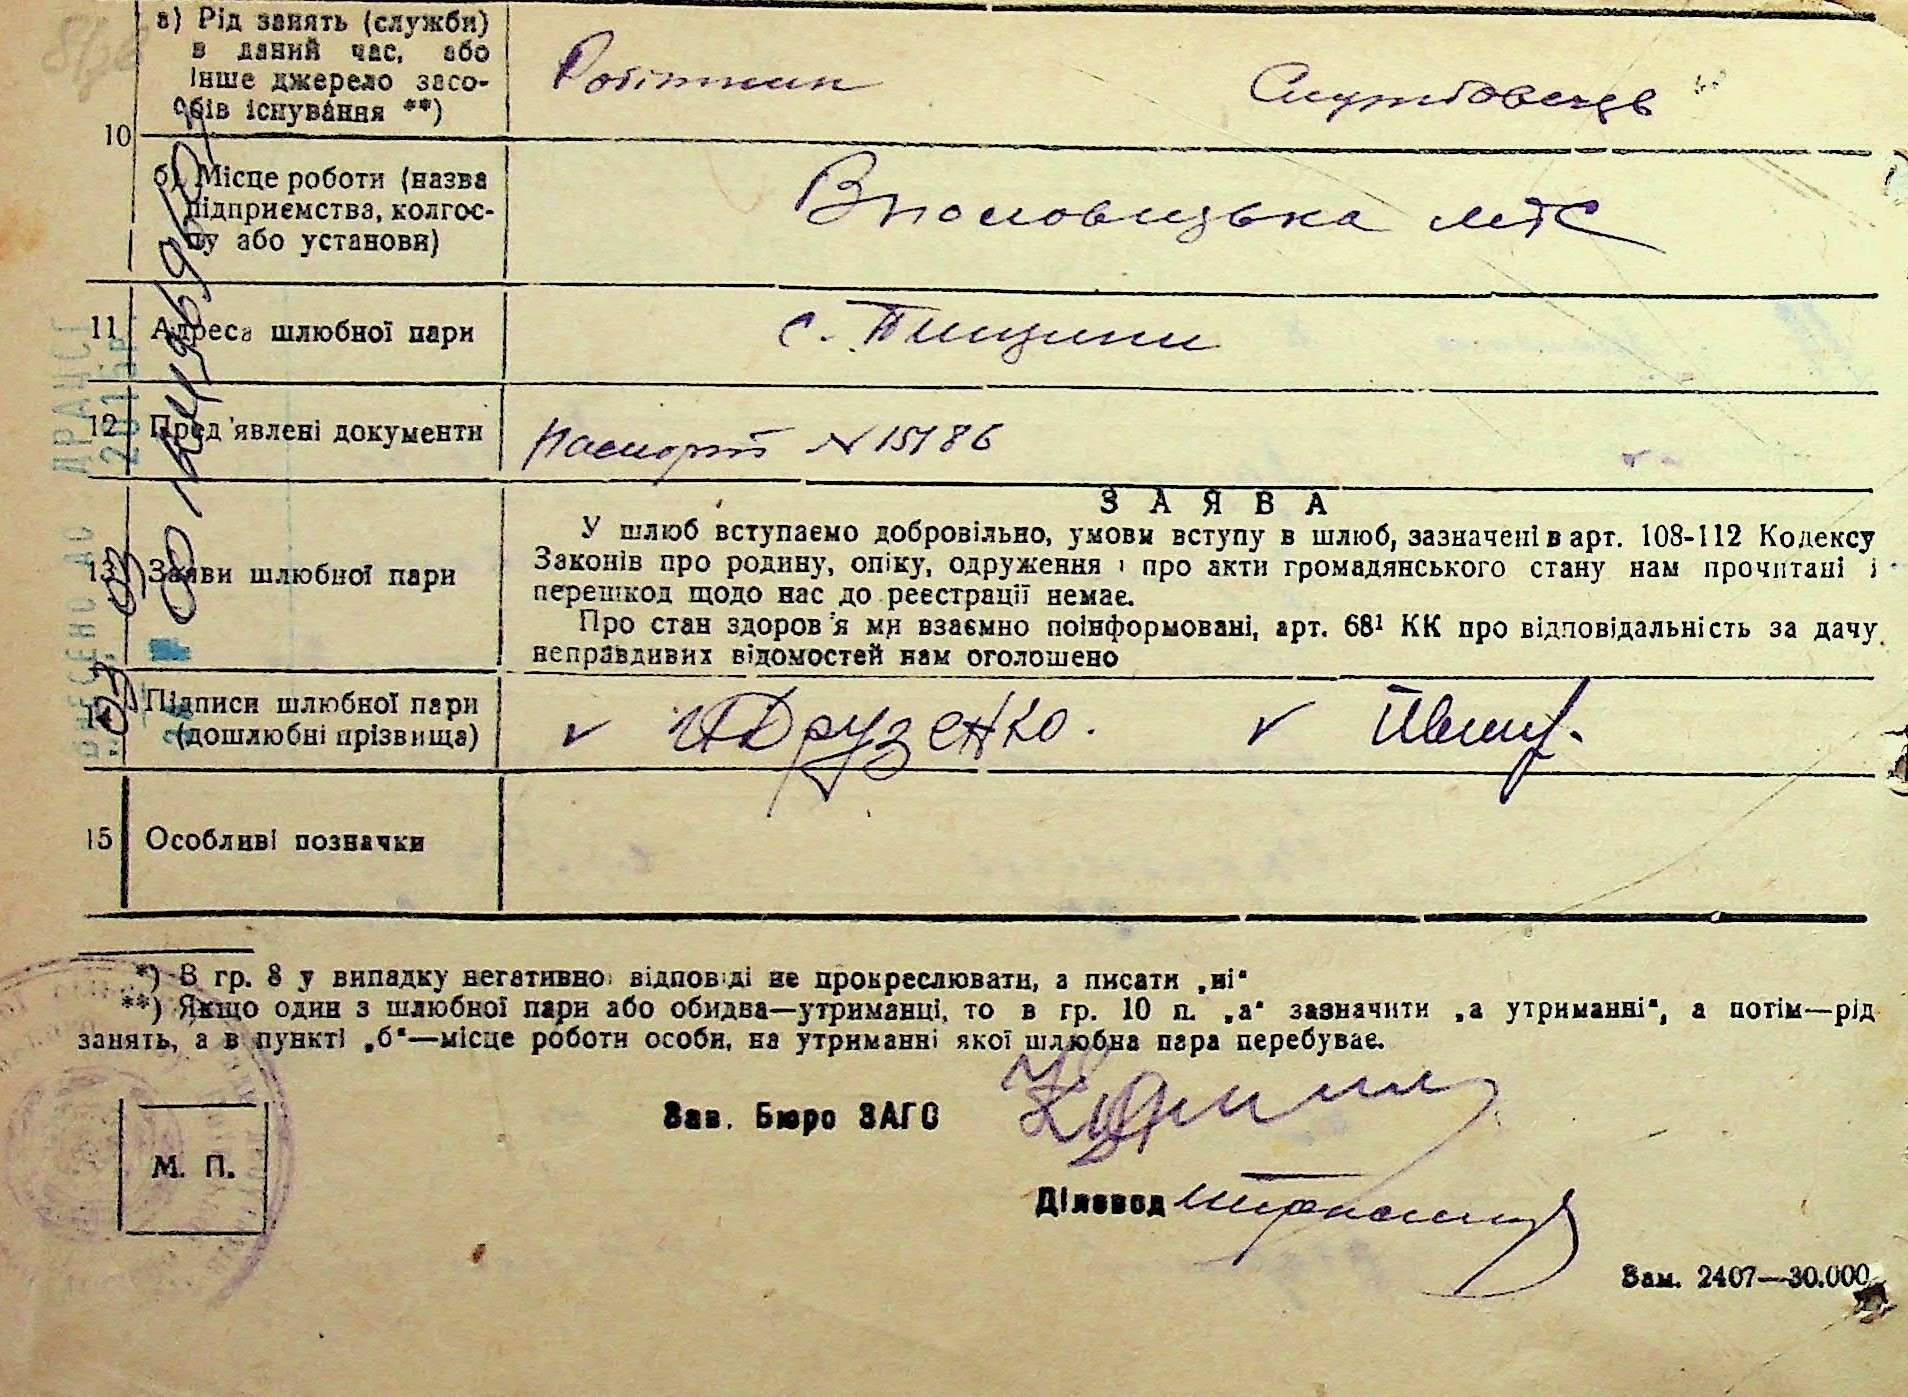 а) Рід занять (служби)
в даний час, або
інше джерело засо-
бів існування **)
Робітник
Службовець
10
б) Місце роботи (назва
підприємства, колгос-
пу або установи)
МТС
11 Адреса шлюбної пари
с. Тищики
12 Пред'явлені документи
Паспорт N 15186
ЗАЯВА
13 Заяви шлюбної пари
У шлюб вступаємо добровільно, умови вступу в шлюб, зазначені в арт. 108-112 Кодексу
Законів про родину, опіку, одруження і про акти громадянського стану нам прочитані і
перешкод щодо нас до реєстрації немає.
Про стан здоров'я ми взаємно поінформовані, арт. 68¹ КК про відповідальність за дачу
неправдивих відомостей нам оголошено
14 Підписи шлюбної пари
(дошлюбні прізвища)
Друзенко.
15 Особливі позначки
*) В гр. 8 у випадку негативної відповіді не прокреслювати, а писати „ні“
**) Якщо один з шлюбної пари або обидва—утриманці, то в гр. 10 п. „а“ зазначити „а утриманні“, а потім—рід
занять, а в пункті „б“—місце роботи особи, на утриманні якої шлюбна пара перебуває.
Зав. Бюро ЗАГС
М. П.
Діловод
Зам. 2407—30.000
ВНЕСЕНО ДО ДРАЦСГ